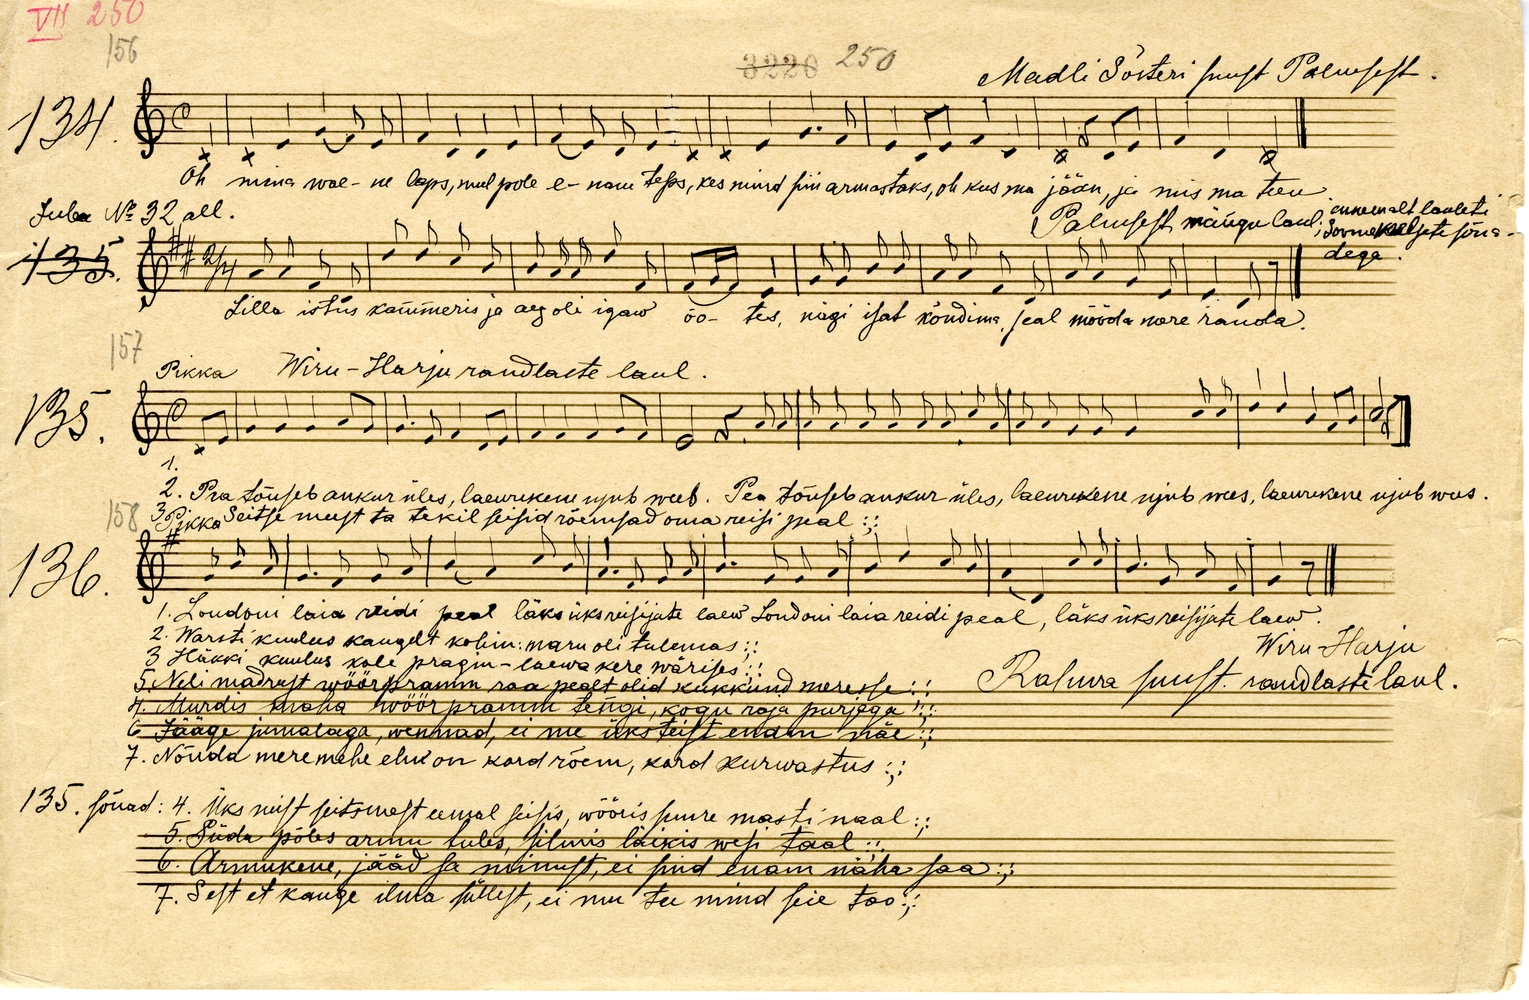 VII 250
156
3220 250
Madli Sösteri suust Palmsest.
134.
Oh mina wae-ne laps, mul pole e-nam teps, kes mind siin armastaks, oh kus ma jään, ja mis ma teen
Juba № 32 all.
Palmsest mängu laul, ennemalt lauleti
Soomekeeljete sõna-
dega.
135.
Lilla istus kammeris ja aeg oli igaw oo-tes, nägi isat kõndima, seal mööda mere randa.
157
Pikka Wiru-Harju randlaste laul.
135.
1.
2. Pea tõuseb ankur üles, laewukene ujub wees. Pea tõuseb ankur üles, laewukene ujub wees, laewukene ujub wees.
3. Seitse meest ta tekil seisid rõemsad oma reisi peal :;:
158
Pikka
136.
1. Londoni laia reidi peal läks üks reisijate laew Londoni laia reidi peal, läks üks reisijate laew.
2. Warsti kuulus kaugelt kohin: maru oli tulemas :;:
3 Häkki kuulus kole pragin - laewa kere wärises :;:
Wiru-Harju
5. Neli madrust wöörpramm raa pealt olid kukkund meresse :;:
Rahwa suust. randlaste laul.
4. Murdis maha wöörpramm tengi, kogu raja purjega :;:
6 Jääge jumalaga, wennad, ei me üksteist enam näe :;:
7. Nõnda meremehe elu on kord rõem, kord kurwastus :;:
135. sõnad: 4. Üks neist seitsmest eemal seisis, wööris suure masti naal :;:
5. Süda põles armu tules, silmis läikis wesi taal :;:
6. Armukene, jääd sa minust, ei sind enam näha saa :;:
7. Sest et kauge ilma süllest, ei mu tee mind seie too :;: